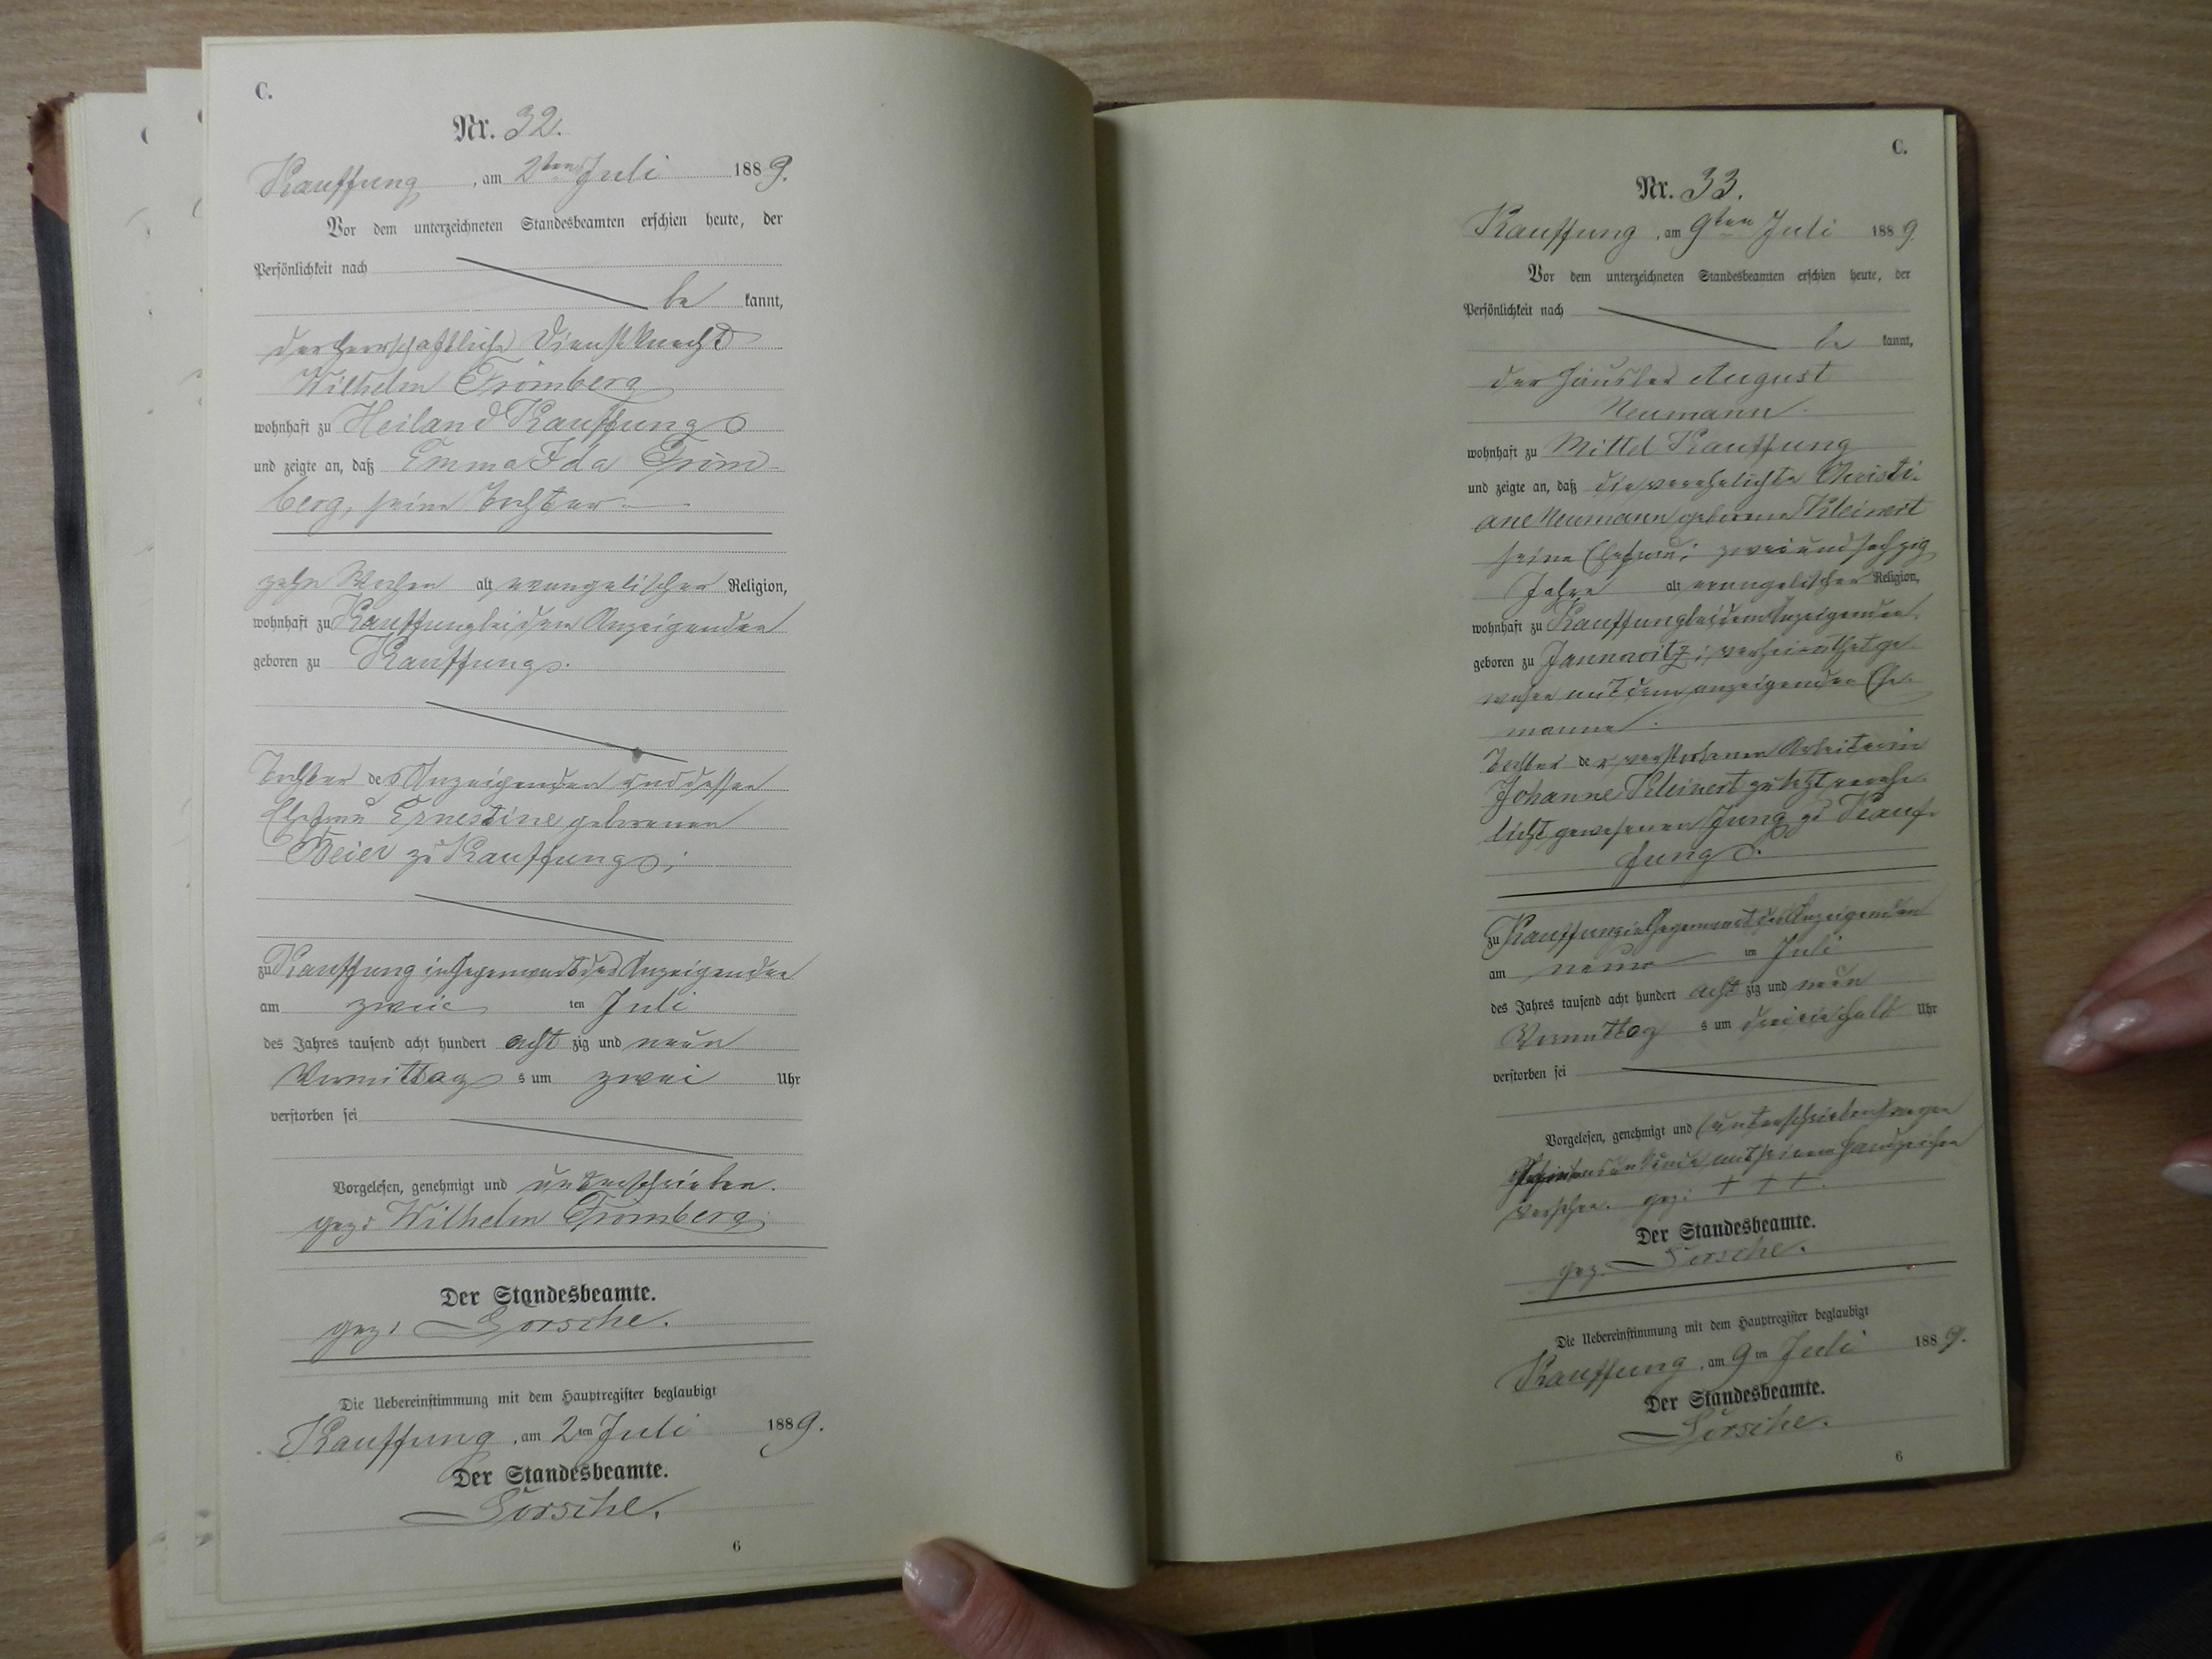 C.
Nr. 32.
Kauffung, am 2ten Juli 1889.
Vor dem unterzeichneten Standesbeamten erschien heute, der
Persönlichkeit nach
be kannt,
der herrschaftliche Dienstknecht
Wilhelm Frömberg
wohnhaft zu Heiland Kauffung
und zeigte an, daß Emma Ida Fröm-
berg, seine Tochter
zehn Wochen alt, evangelischer Religion,
wohnhaft zu Kauffung bei dem Anzeigenden
geboren zu Kauffung.
Tochter des Anzeigenden und dessen
Ehefrau Ernestine geborenen
Beier zu Kauffung;
zu Kauffung in Gegenwart des Anzeigenden
am zwei ten Juli
des Jahres tausend acht hundert acht zig und neun
Vormittag s um zwei Uhr
verstorben sei
Vorgelesen, genehmigt und unterschrieben.
gez: Wilhelm Frömberg
Der Standesbeamte.
gez: Görsche.
Die Uebereinstimmung mit dem Hauptregister beglaubigt
Kauffung, am 2ten Juli 1889.
Der Standesbeamte.
Görsche.
6
C.
Nr. 33.
Kauffung, am 9ten Juli 1889.
Vor dem unterzeichneten Standesbeamten erschien heute, der
Persönlichkeit nach
be kannt,
der Häusler August
Neumann
wohnhaft zu Mittel Kauffung
und zeigte an, daß die verehelichte Christi-
ane Neumann geborene Kleinert
seine Ehefrau; zweiundsechzig
Jahre alt, evangelischer Religion,
wohnhaft zu Kauffung bei dem Anzeigenden.
geboren zu Jannowitz; verheirathet ge-
wesen mit dem anzeigenden Ehe-
manne.
Tochter der verstorbenen Arbeiterin
Johanne Kleinert zuletzt verehe-
licht gewesenen Jung zu Kauf-
fung.
zu Kauffung in Gegenwart des Anzeigenden
am neun ten Juli
des Jahres tausend acht hundert acht zig und neun
Vormittag s um Uhr
verstorben sei
Vorgelesen, genehmigt und wegen
mit seinem Handzeichen
versehen. gez: + + +.
Der Standesbeamte.
gez. Görsche.
Die Uebereinstimmung mit dem Hauptregister beglaubigt
Kauffung, am 9ten Juli 1889.
Der Standesbeamte.
Görsche.
6